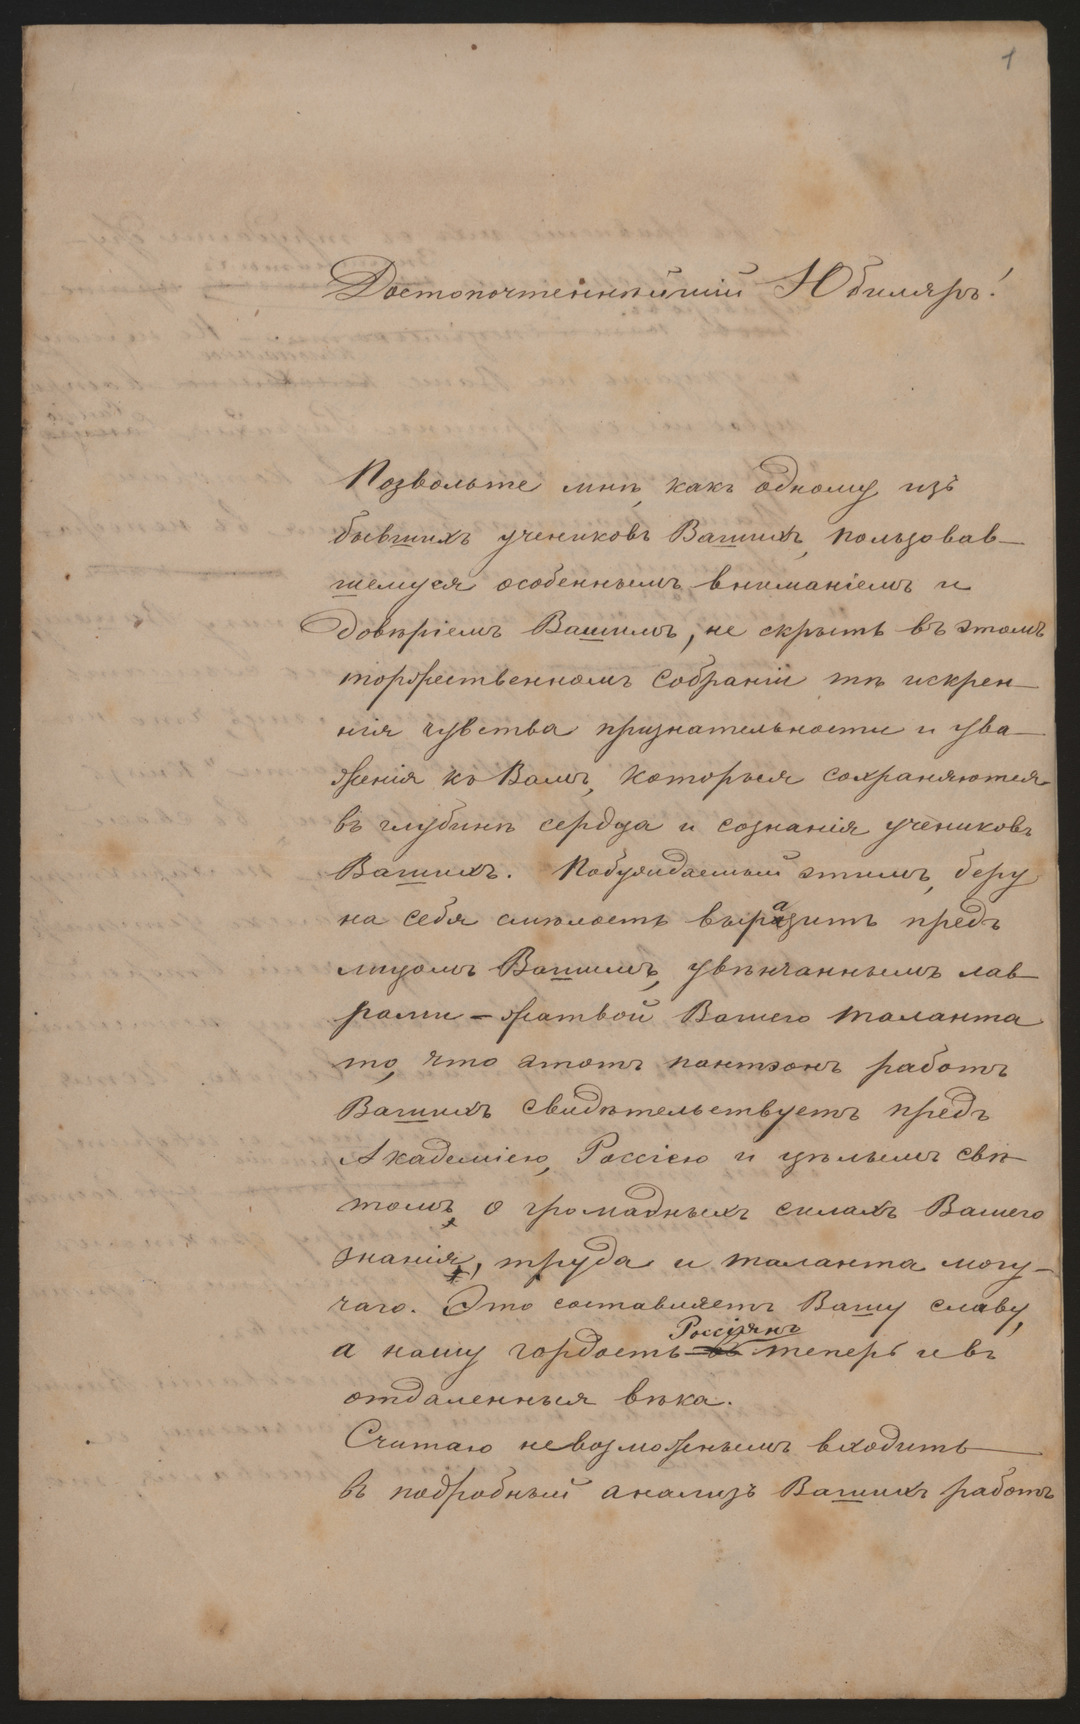 1
Достопочтеннѣйшій Юбиляръ!
Позвольте мнѣ, какъ одному изъ
бывшихъ учениковъ Вашихъ, пользовав-
шемуся особеннымъ вниманіемъ и
довѣріемъ Вашимъ, не скрыть въ этомъ
торжественномъ собраніи тѣ искрен-
нія чувства признательности и ува-
женія къ Вамъ, которыя сохраняются
въ глубинѣ сердца и сознанія учениковъ
Вашихъ. Побуждаемый этимъ, беру
на себя смѣлость выразить предъ
лицомъ Вашимъ, увѣнчаннымъ лав-
рами - жатвой Вашего таланта
то, что этотъ пантэонъ работъ
Вашихъ свидѣтельствуетъ предъ
Академіею, Россіею и цѣлымъ свѣ-
томъ, о громадныхъ силахъ Вашего
знанія, труда и таланта могу-
чаго. Это составляетъ Вашу славу,
Россіянъ
а нашу гордость теперь и въ
отдаленныя вѣка.
Считаю невозможнымъ входить
въ подробный анализъ Вашихъ работъ